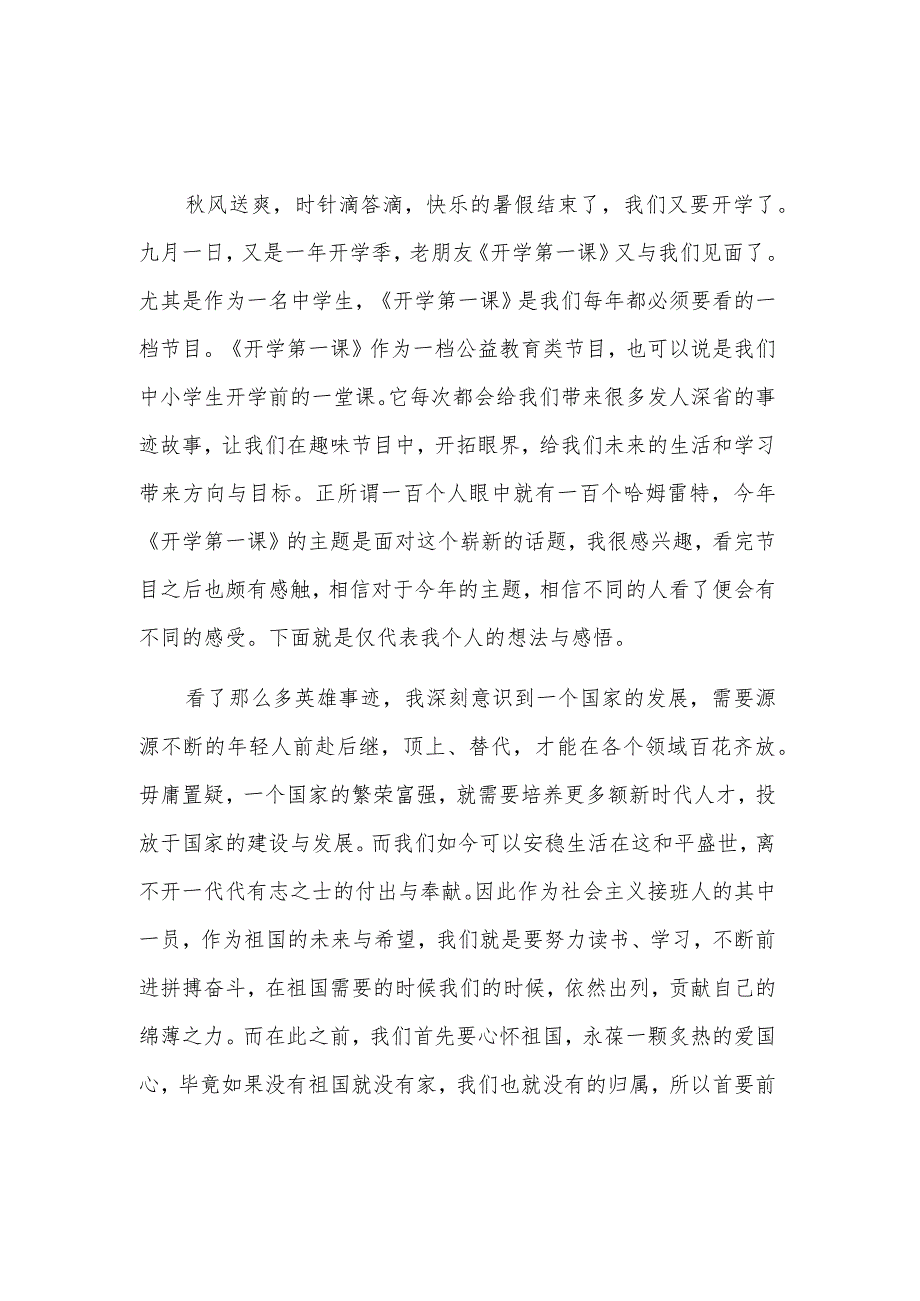 秋风送爽，时针滴答滴，快乐的暑假结束了，我们又要开学了。
九月一日，又是一年开学季，老朋友《开学第一课》又与我们见面了。
尤其是作为一名中学生，《开学第一课》是我们每年都必须要看的一
档节目。《开学第一课》作为一档公益教育类节目，也可以说是我们
中小学生开学前的一堂课。它每次都会给我们带来很多发人深省的事
迹故事，让我们在趣味节目中，开拓眼界，给我们未来的生活和学习
带来方向与目标。正所谓一百个人眼中就有一百个哈姆雷特，今年
《开学第一课》的主题是面对这个崭新的话题，我很感兴趣，看完节
目之后也颇有感触，相信对于今年的主题，相信不同的人看了便会有
不同的感受。下面就是仅代表我个人的想法与感悟。
看了那么多英雄事迹，我深刻意识到一个国家的发展，需要源
源不断的年轻人前赴后继，顶上、替代，才能在各个领域百花齐放。
毋庸置疑，一个国家的繁荣富强，就需要培养更多额新时代人才，投
放于国家的建设与发展。而我们如今可以安稳生活在这和平盛世，离
不开一代代有志之士的付出与奉献。因此作为社会主义接班人的其中
一员，作为祖国的未来与希望，我们就是要努力读书、学习，不断前
进拼搏奋斗，在祖国需要的时候我们的时候，依然出列，贡献自己的
绵薄之力。而在此之前，我们首先要心怀祖国，永葆一颗炙热的爱国
心，毕竟如果没有祖国就没有家，我们也就没有的归属，所以首要前